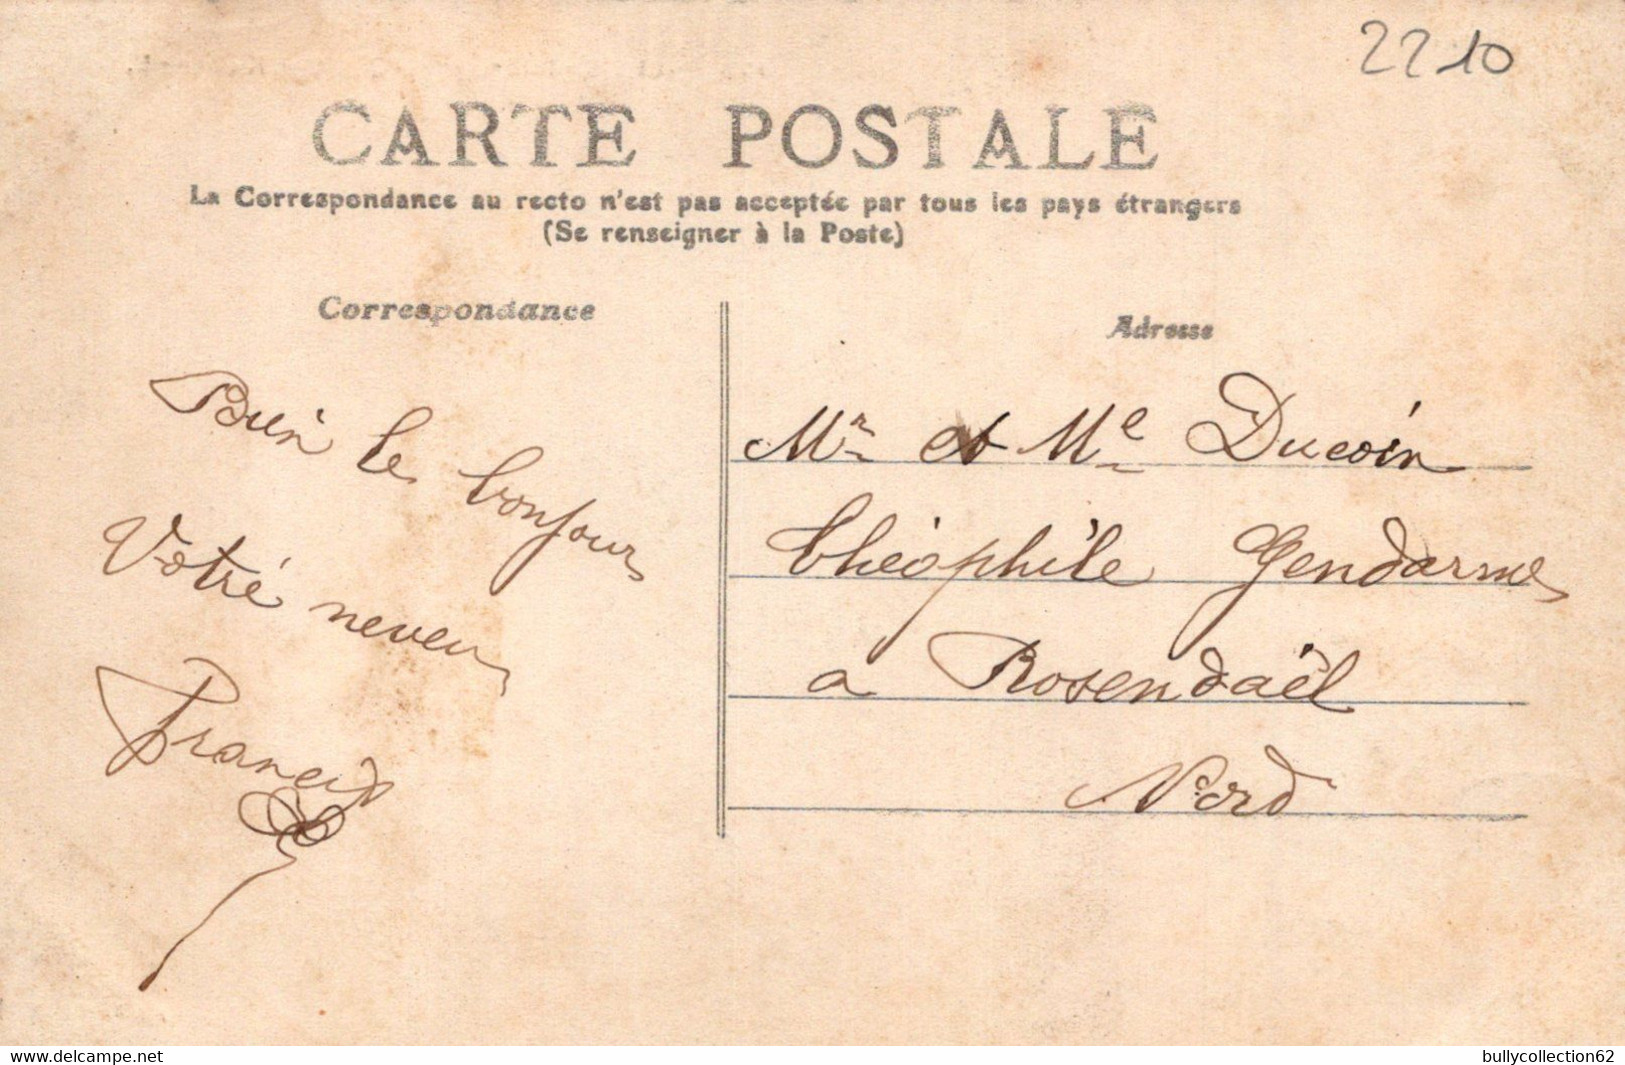 2210
CARTE POSTALE
La Correspondance au recto n'est pas acceptée par tous les pays étrangers
(Se renseigner à la Poste)
Correspondance
Bien le bonjour
Votre neveu
Francis
Adresse
Mr et Me Ducoin
théophile Gendarme
a Rosendaël
Nord
delcampe.net
bullycollection62